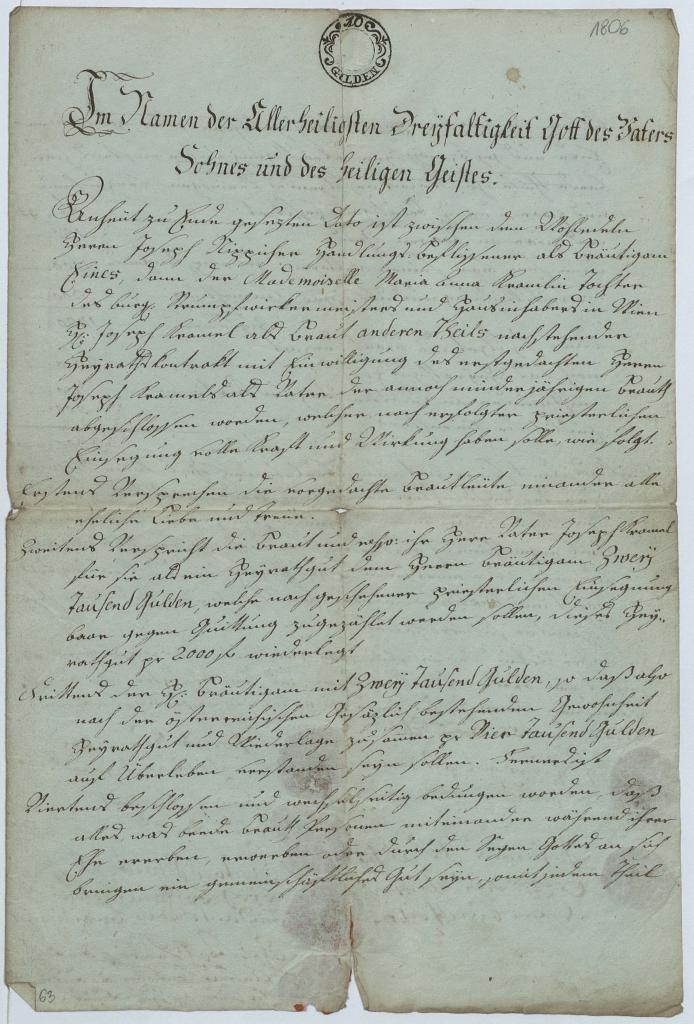 1806
10
GULDEN
Im Namen der Allerheiligsten Dreyfaltigkeit Gott des Vaters
Sohnes und des heiligen Geistes.
Anheut zu Ende gesezten Dato ist zwischen dem Wohledeln
Herrn Joseph Handlungs beflissener als Bräutigam
Eines, dann der Mademoiselle Maria Anna Kramlin Tochter
des burg. Strumpfwirkermeisters und Hausinhabers in Wien
H: Joseph Kramel als Braut anderen Theils nachstehender
Heyrathskontrakt mit Einwilligung des erstgedachten Herrn
Joseph Kramels als Vater der annoch minderjährigen Brautt
abgeschlossen worden, welcher nach erfolgter priesterlichen
Einsegnung volle Kraft und Wirkung haben solle, wie folgt.
Erstens Versprechen die vorgedachte Brautleute einander alle
eheliche Liebe und Treue.
Zweitens Verspricht die Braut und resp: ihr Herr Vater Joseph Kramel
für sie als ein Heyrathgut dem Herrn Bräutigam Zwey
Tausend Gulden, welche nach geschehener priesterlichen Einsegnung
baar gegen Quittung zugezählet werden sollen, dieses Hey-
rathgut pr 2000 f wiederlegt
Drittens der H: Bräutigam mit Zwey Tausend Gulden, so daß also
nach der österreichischen Gesäzlich bestehenden Gewohnheit
Heyrathgut und Wiederlage zusamen pr Vier Tausend Gulden
auf Überleben verstanden seyn sollen. Fernerdigst
Viertens beschlossen und wechselseitig bedungen worden, daß
alles was beede Brautt Personen miteinander während ihrer
Ehe ererben, erwerben oder durch den Segen Gottes an sich
bringen ein gemeinschäftliches Gut seyn, somit jedem Theil
63